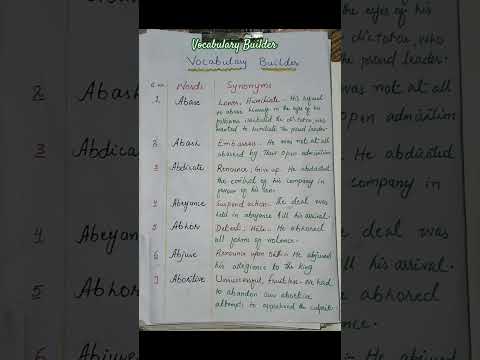 Vocabulary Builder
Vocabulary Builder
S.no. Words Synonyms
1. Abase Lower, Humiliate - His refusal
to abase himself in the eyes of his
followers the dictator, who
wanted to humiliate the proud leader.
2. Abash Embarrass - He was not at all
abashed by their open admiration
3. Abdicate Renounce, Give up - He abdicated
the control of his company in
of his son.
4. Abeyance Suspend action - The deal was
held in abeyance till his arrival.
5. Abhor Detest, Hate - He abhored
all forms of violence.
6. Abjure Renounce upon Oath - He abjured
his allegiance to the king
7 Abortive Unsuccessful, fruitless - We had
to abandon our abortive
attempts to apprehend the culprit.
2
3 Abdica
4 Abeyan
5 Abhor
6 Abjure
the eyes of his
dictator, who
the proud leader.
was not at all
open admiration
He abdicated
company in
the deal was
his arrival.
abhored
violence.